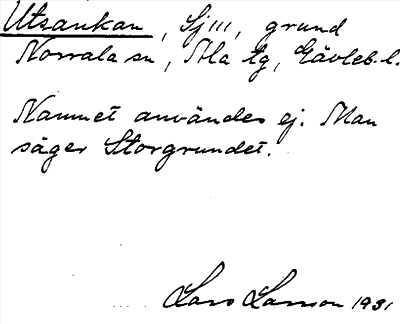 Utsankan, Sj III, grund
Norrala sn, Ala tg, Gävleb. l.
Namnet användes ej. Man
säger Storgrundet.
Lars Larsson 1931